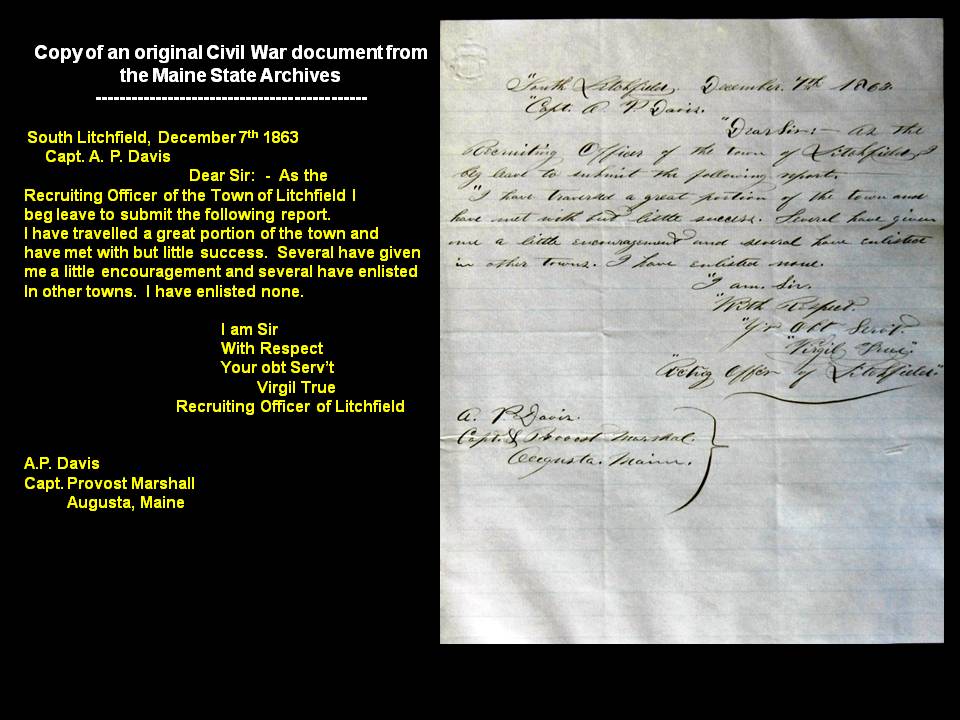 Copy of an original Civil War document from
the Maine State Archives
---------------------------------------------
South Litchfield, December 7th 1863
Capt. A. P. Davis
Dear Sir: - As the
Recruiting Officer of the Town of Litchfield I
beg leave to submit the following report.
I have travelled a great portion of the town and
have met with but little success. Several have given
me a little encouragement and several have enlisted
In other towns. I have enlisted none.
I am Sir
With Respect
Your obt Serv't
Virgil True
Recruiting Officer of Litchfield
A.P. Davis
Capt. Provost Marshall
Augusta, Maine
"South Litchfield, December. 7th 1863.
"Capt. A. P. Davis.
"Dear Sir:- As the
Recruiting Officer of the town of Litchfield, I
beg leave to submit the following report.
"I have traversed a great portion of the town and
have met with but little success. Several have given
me a little encouragement and several have enlisted
in other towns. I have enlisted none.
"I am. Sir.
"With Respect.
"Yr Obt Servt.
"Virgil True."
"Rctig Offcr of Litchfield"
A. P. Davis.
Capt. & Provost Marshal.
Augusta. Maine.